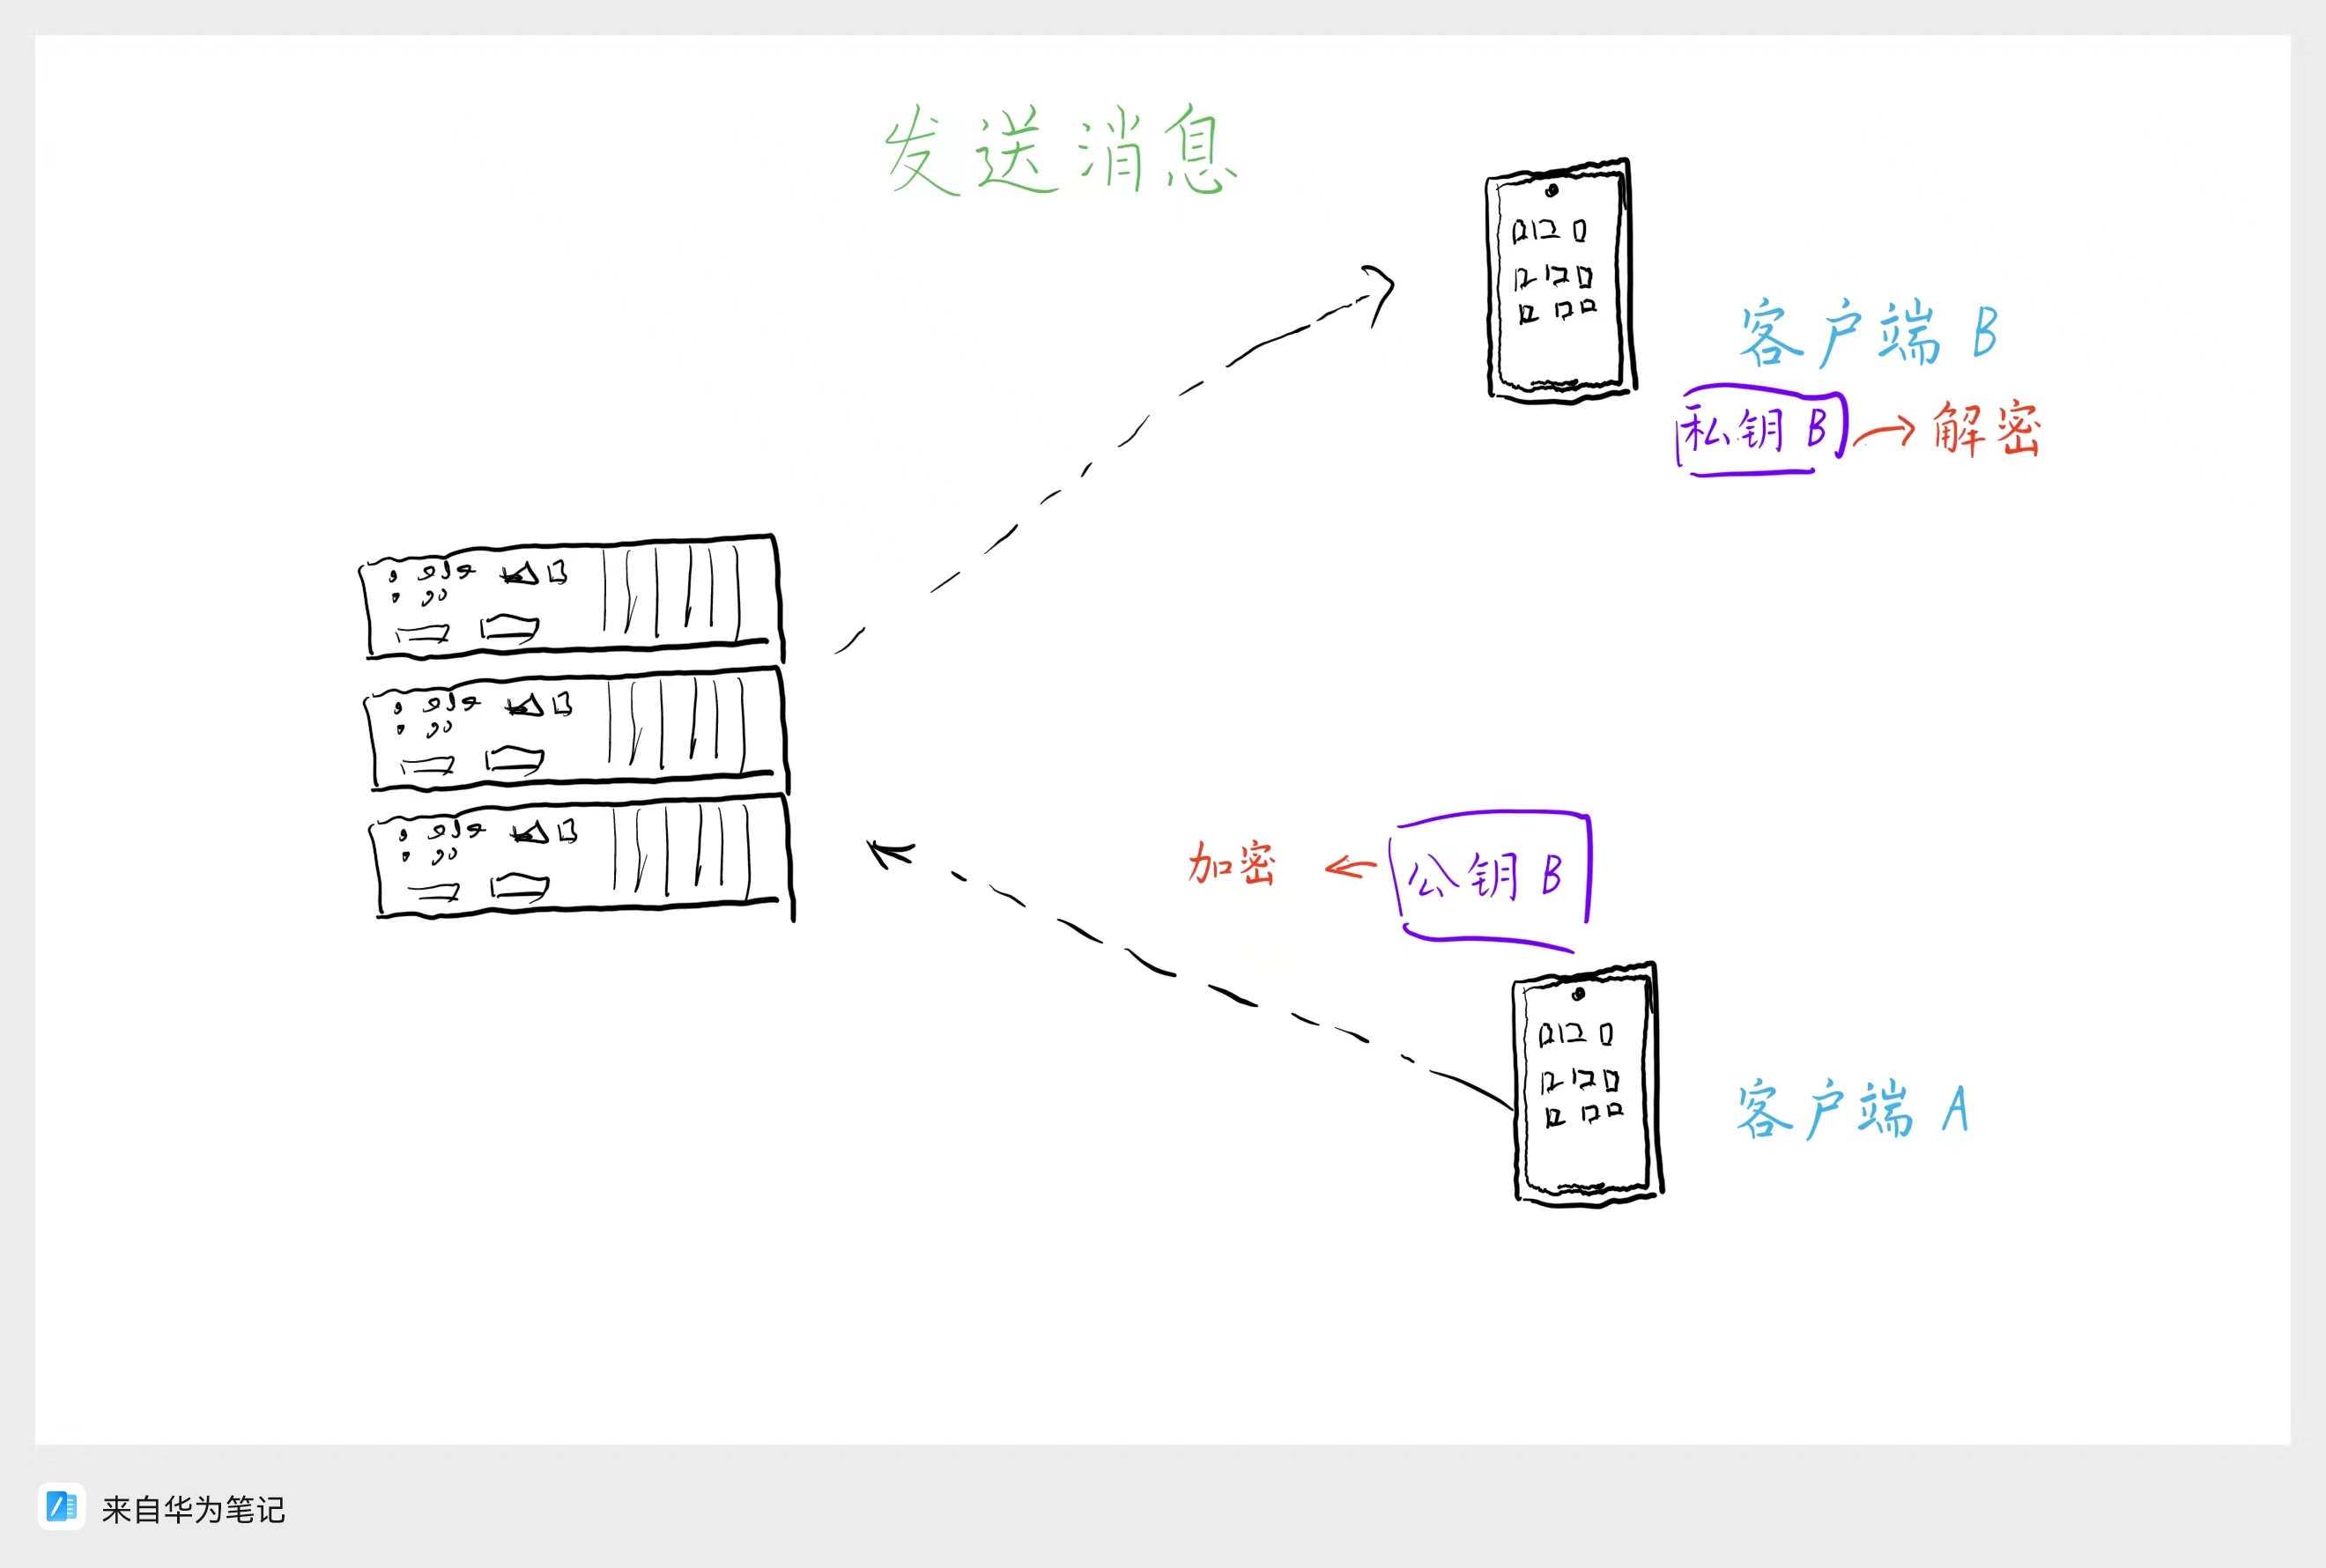 发送消息
客户端 B
私钥 B
解密
加密
公钥 B
客户端 A
来自华为笔记